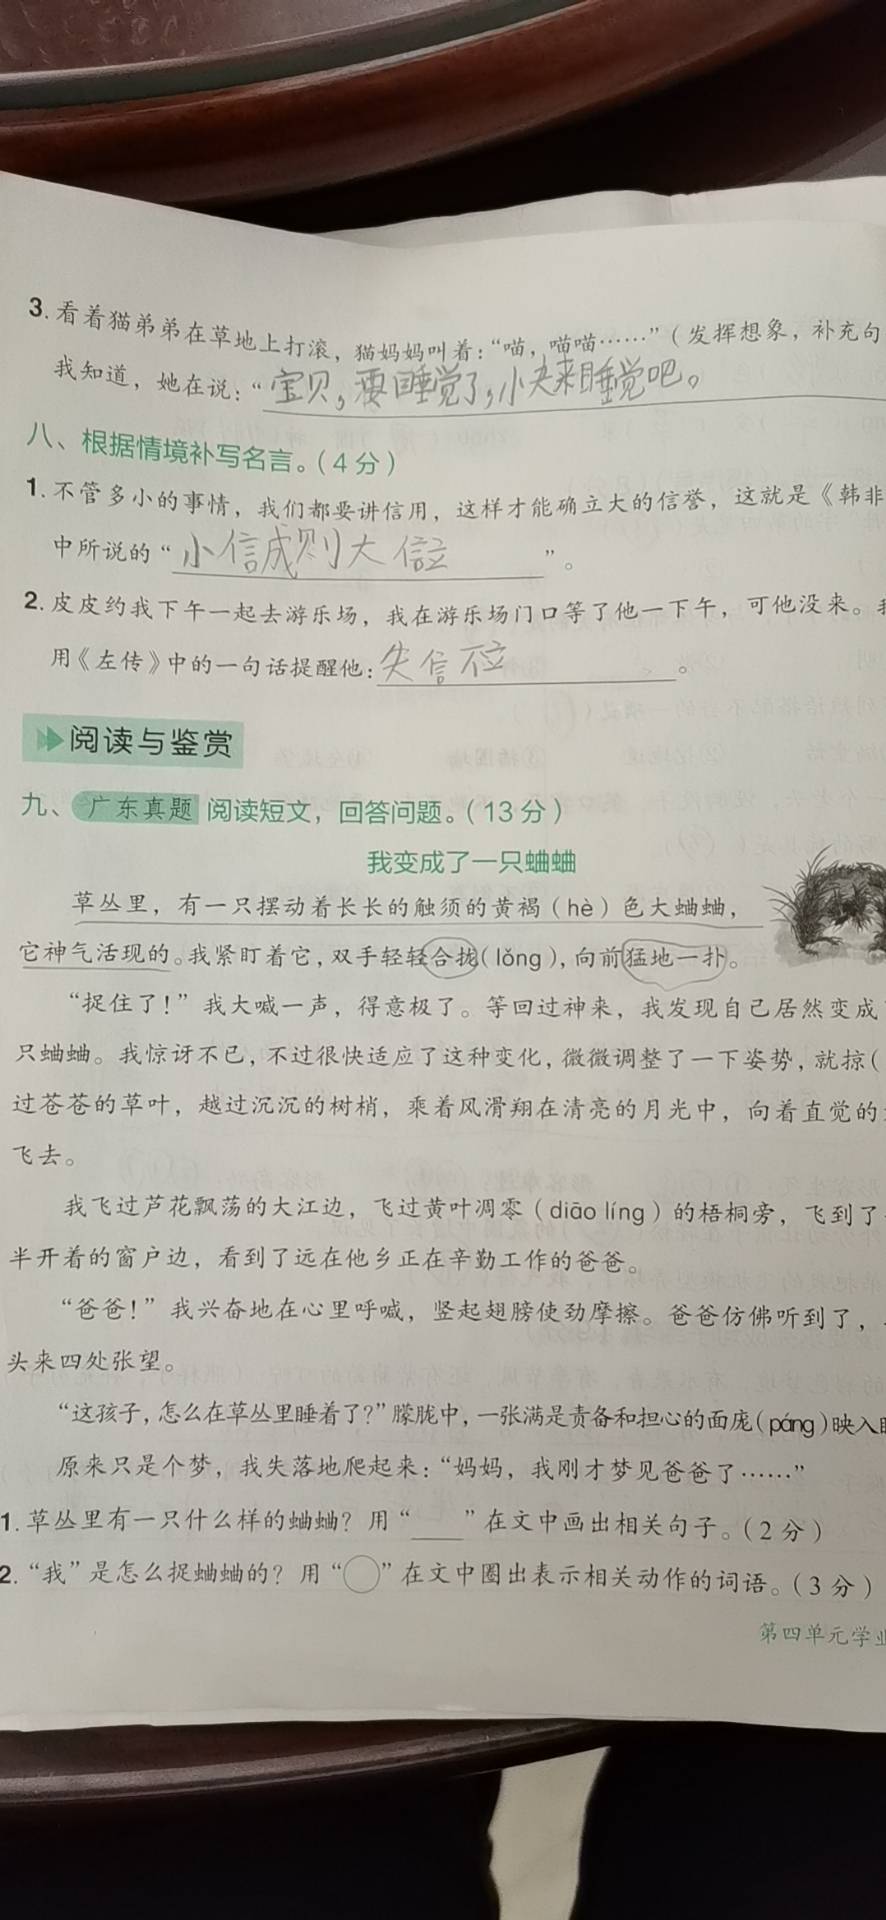 3. 看着猫弟弟在草地上打滚，猫妈妈叫着：“喵，喵喵……”（发挥想象，补充句
我知道，她在说：“宝贝，要睡觉了，小夫来睡觉吧。
八、根据情境补写名言。（4分）
1. 不管多小的事情，我们都要讲信用，这样才能确立大的信誉，这就是《韩非
中所说的“小信成则大信立”。
2. 皮皮约我下午一起去游乐场，我在游乐场门口等了他一下午，可他没来。我
用《左传》中的一句话提醒他：失信不立。
阅读与鉴赏
九、广东真题 阅读短文，回答问题。（13分）
我变成了一只蛐蛐
草丛里，有一只摆动着长长的触须的黄褐（hè）色大蛐蛐，
它神气活现的。我紧盯着它，双手轻轻合拢（lǒng），向前猛地一扑。
“捉住了！”我大喊一声，得意极了。等回过神来，我发现自己居然变成
只蛐蛐。我惊讶不已，不过很快适应了这种变化，微微调整了一下姿势，就掠（
过苍苍的草叶，越过沉沉的树梢，乘着风滑翔在清亮的月光中，向着直觉的
飞去。
我飞过芦花飘荡的大江边，飞过黄叶凋零（diāo líng）的梧桐旁，飞到了
半开着的窗户边，看到了远在他乡正在辛勤工作的爸爸。
“爸爸！”我兴奋地在心里呼喊，竖起翅膀使劲摩擦。爸爸仿佛听到了，
头来四处张望。
“这孩子，怎么在草丛里睡着了？”朦胧中，一张满是责备和担心的面庞（páng）映入
原来只是个梦，我失落地爬起来：“妈妈，我刚才梦见爸爸了……”
1. 草丛里有一只什么样的蛐蛐？用“____”在文中画出相关句子。（2分）
2. “我”是怎么捉蛐蛐的？用“○”在文中圈出表示相关动作的词语。（3分）
第四单元学业